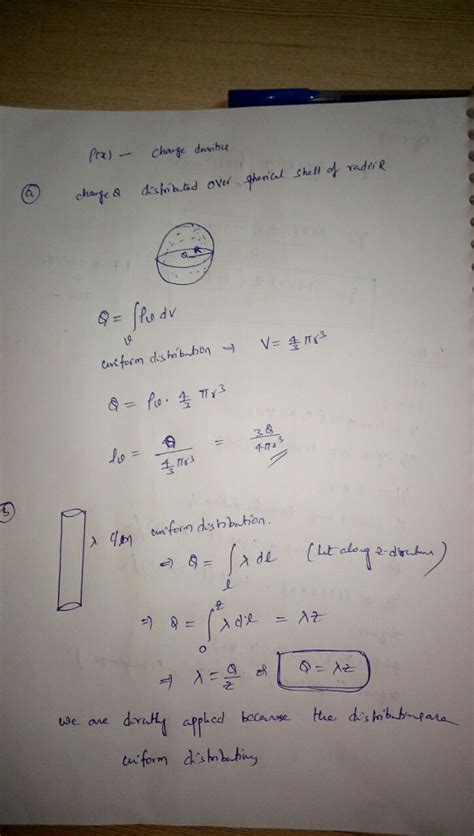 ρ(x) — charge
(a) charge Q distributed over spherical shell of radii R
R
Q = ∫ᵥ ρᵥ dv
uniform distribution → V = 4/3 πr³
Q = ρᵥ · 4/3 πr³
ρᵥ = Q / (4/3 πr³) = 3Q / 4πr³
(b) λ uniform distribution.
⇒ Q = ∫ₗ λ dl (Let along z-direction)
⇒ Q = ∫₀ᶻ λ dl = λz
⇒ λ = Q/z or Q = λz
we are directly applied because the distributions are
uniform distribution